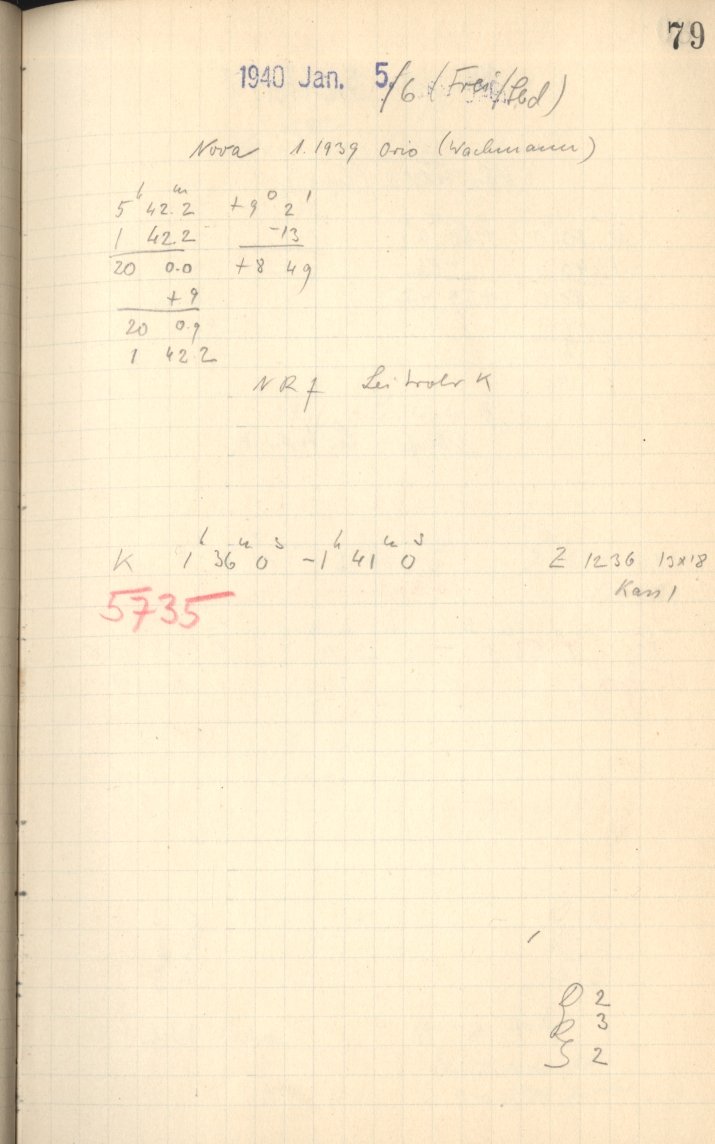 79
1940 Jan. 5./6 (Frei/Sbd)
Nova 1.1939 Orio (Wachmann)
5h 42m.2 +9° 2'
1 42.2 -13
20 0.0 +8 49
+9
20 0.9
1 42.2
NR f Leitrohr K
K 1h 36m 0s -1h 41m 0s Z 1236 13x18
Kass 1
5735
2
3
2